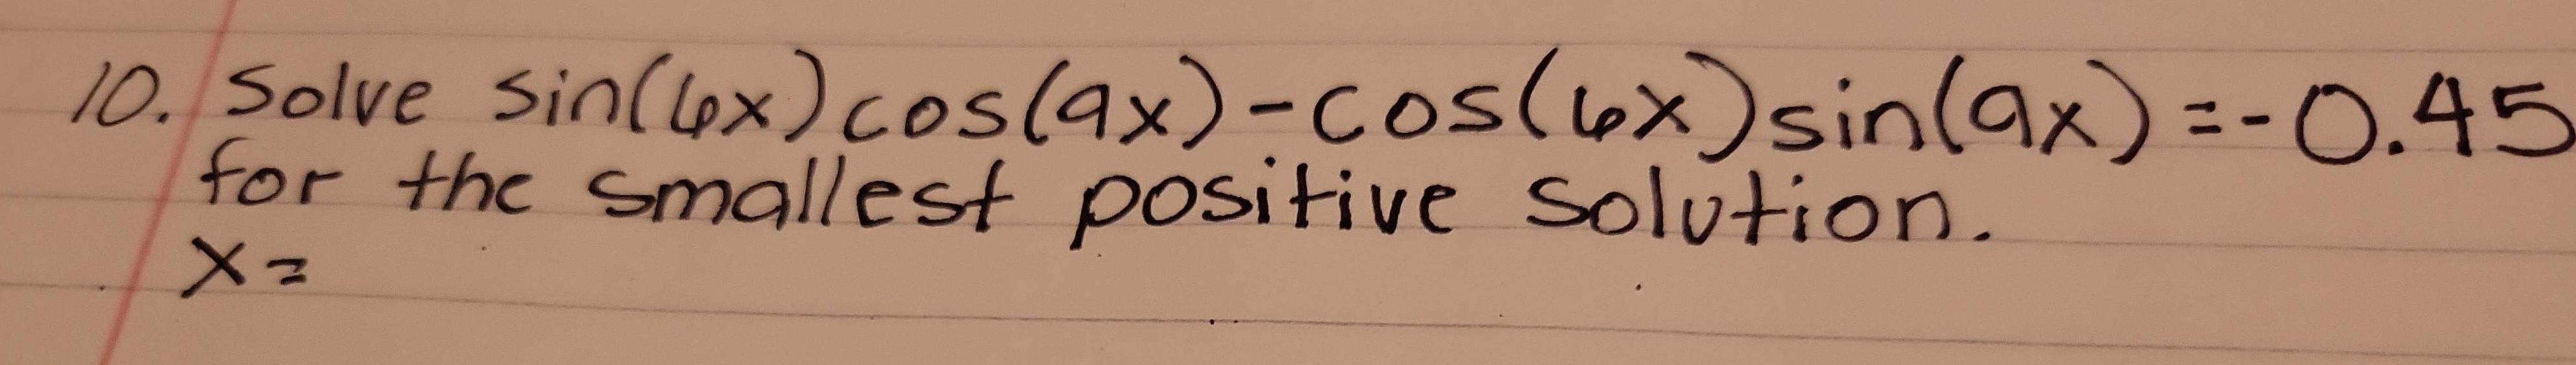 10. Solve sin(6x)cos(9x)-cos(6x)sin(9x)=-0.45
for the smallest positive solution.
x=